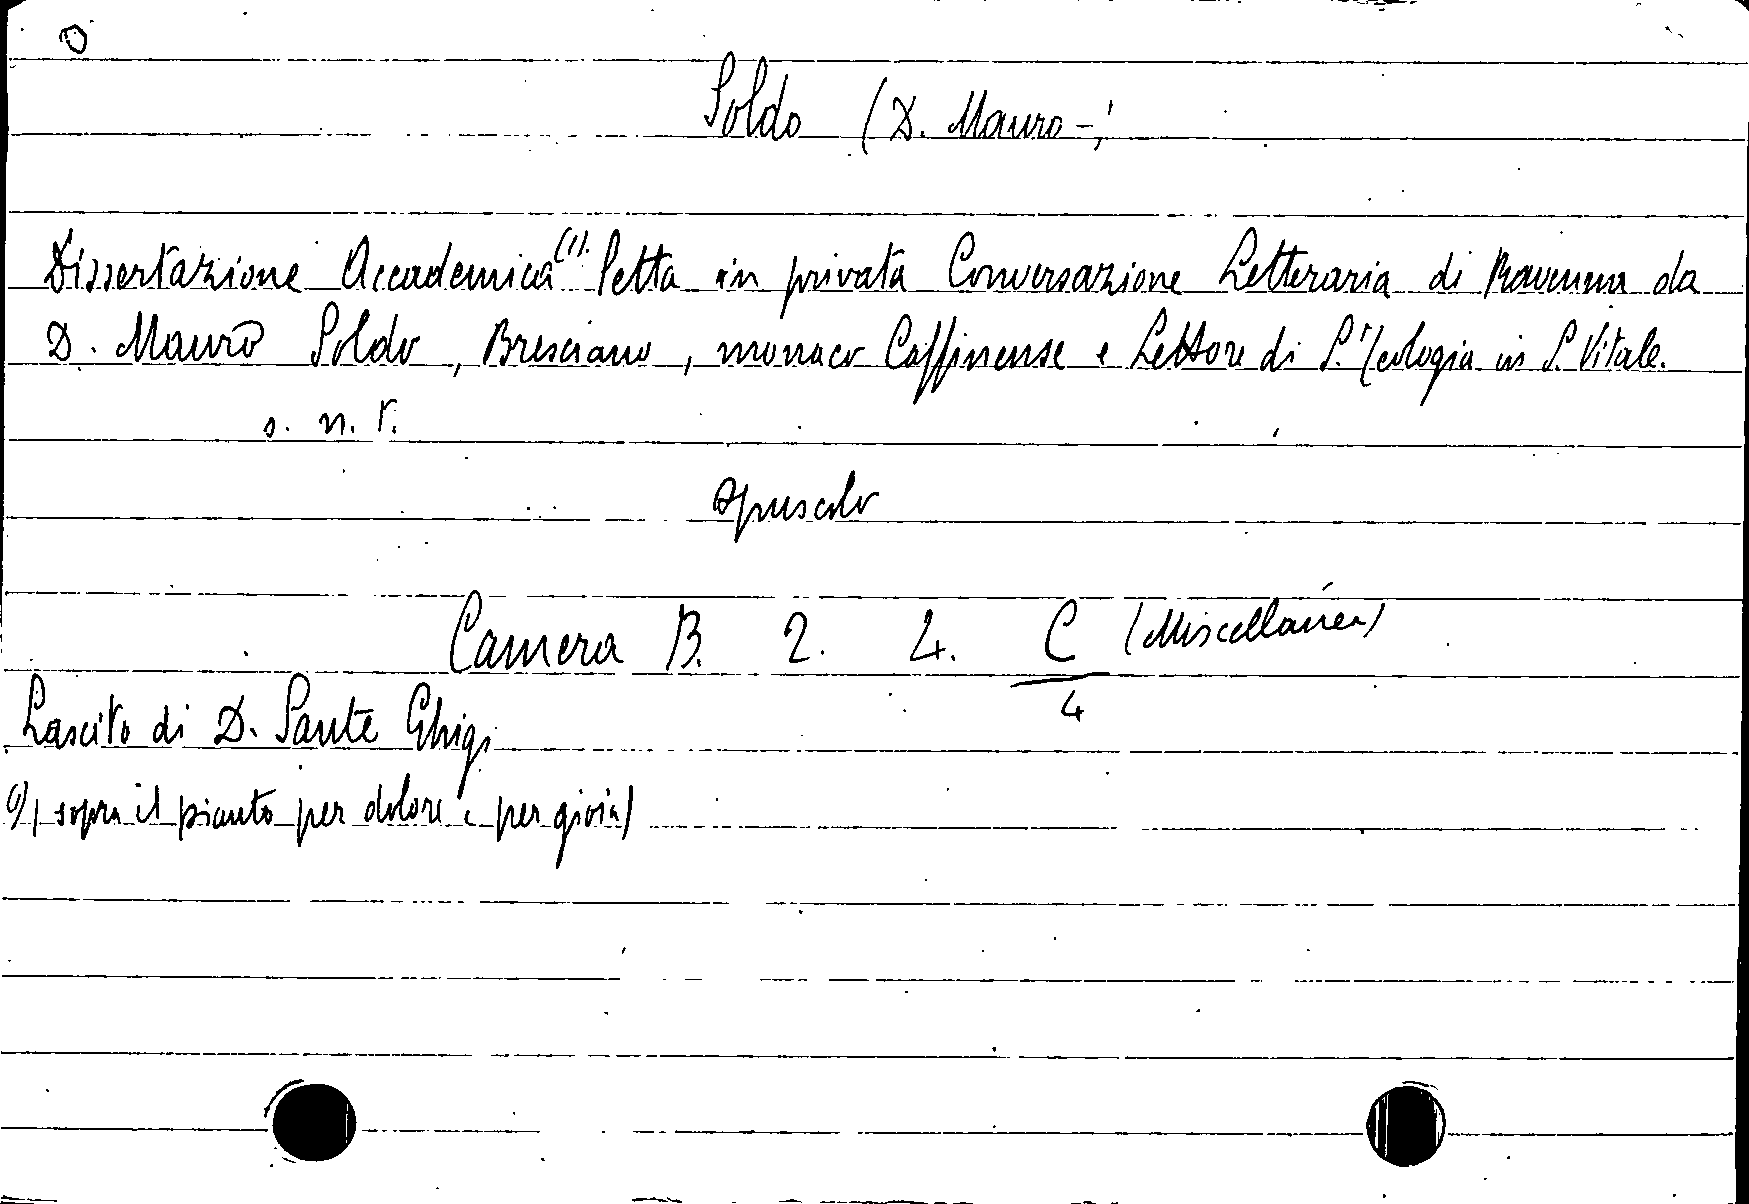 Soldo (D. Mauro-)
Dissertazione Accademica (1). letta in privata Conversazione Letteraria di Ravenna da
D. Mauro Soldo, Bresciano, monaco Cassinense e Lettore di S. Teologia in S. Vitale.
s. n. t.
opuscolo
Camera B. 2. 4. C (Miscellanea)
4
Lascito di D. Sante Ghigi
(1) (sopra il pianto per dolore e per gioia)